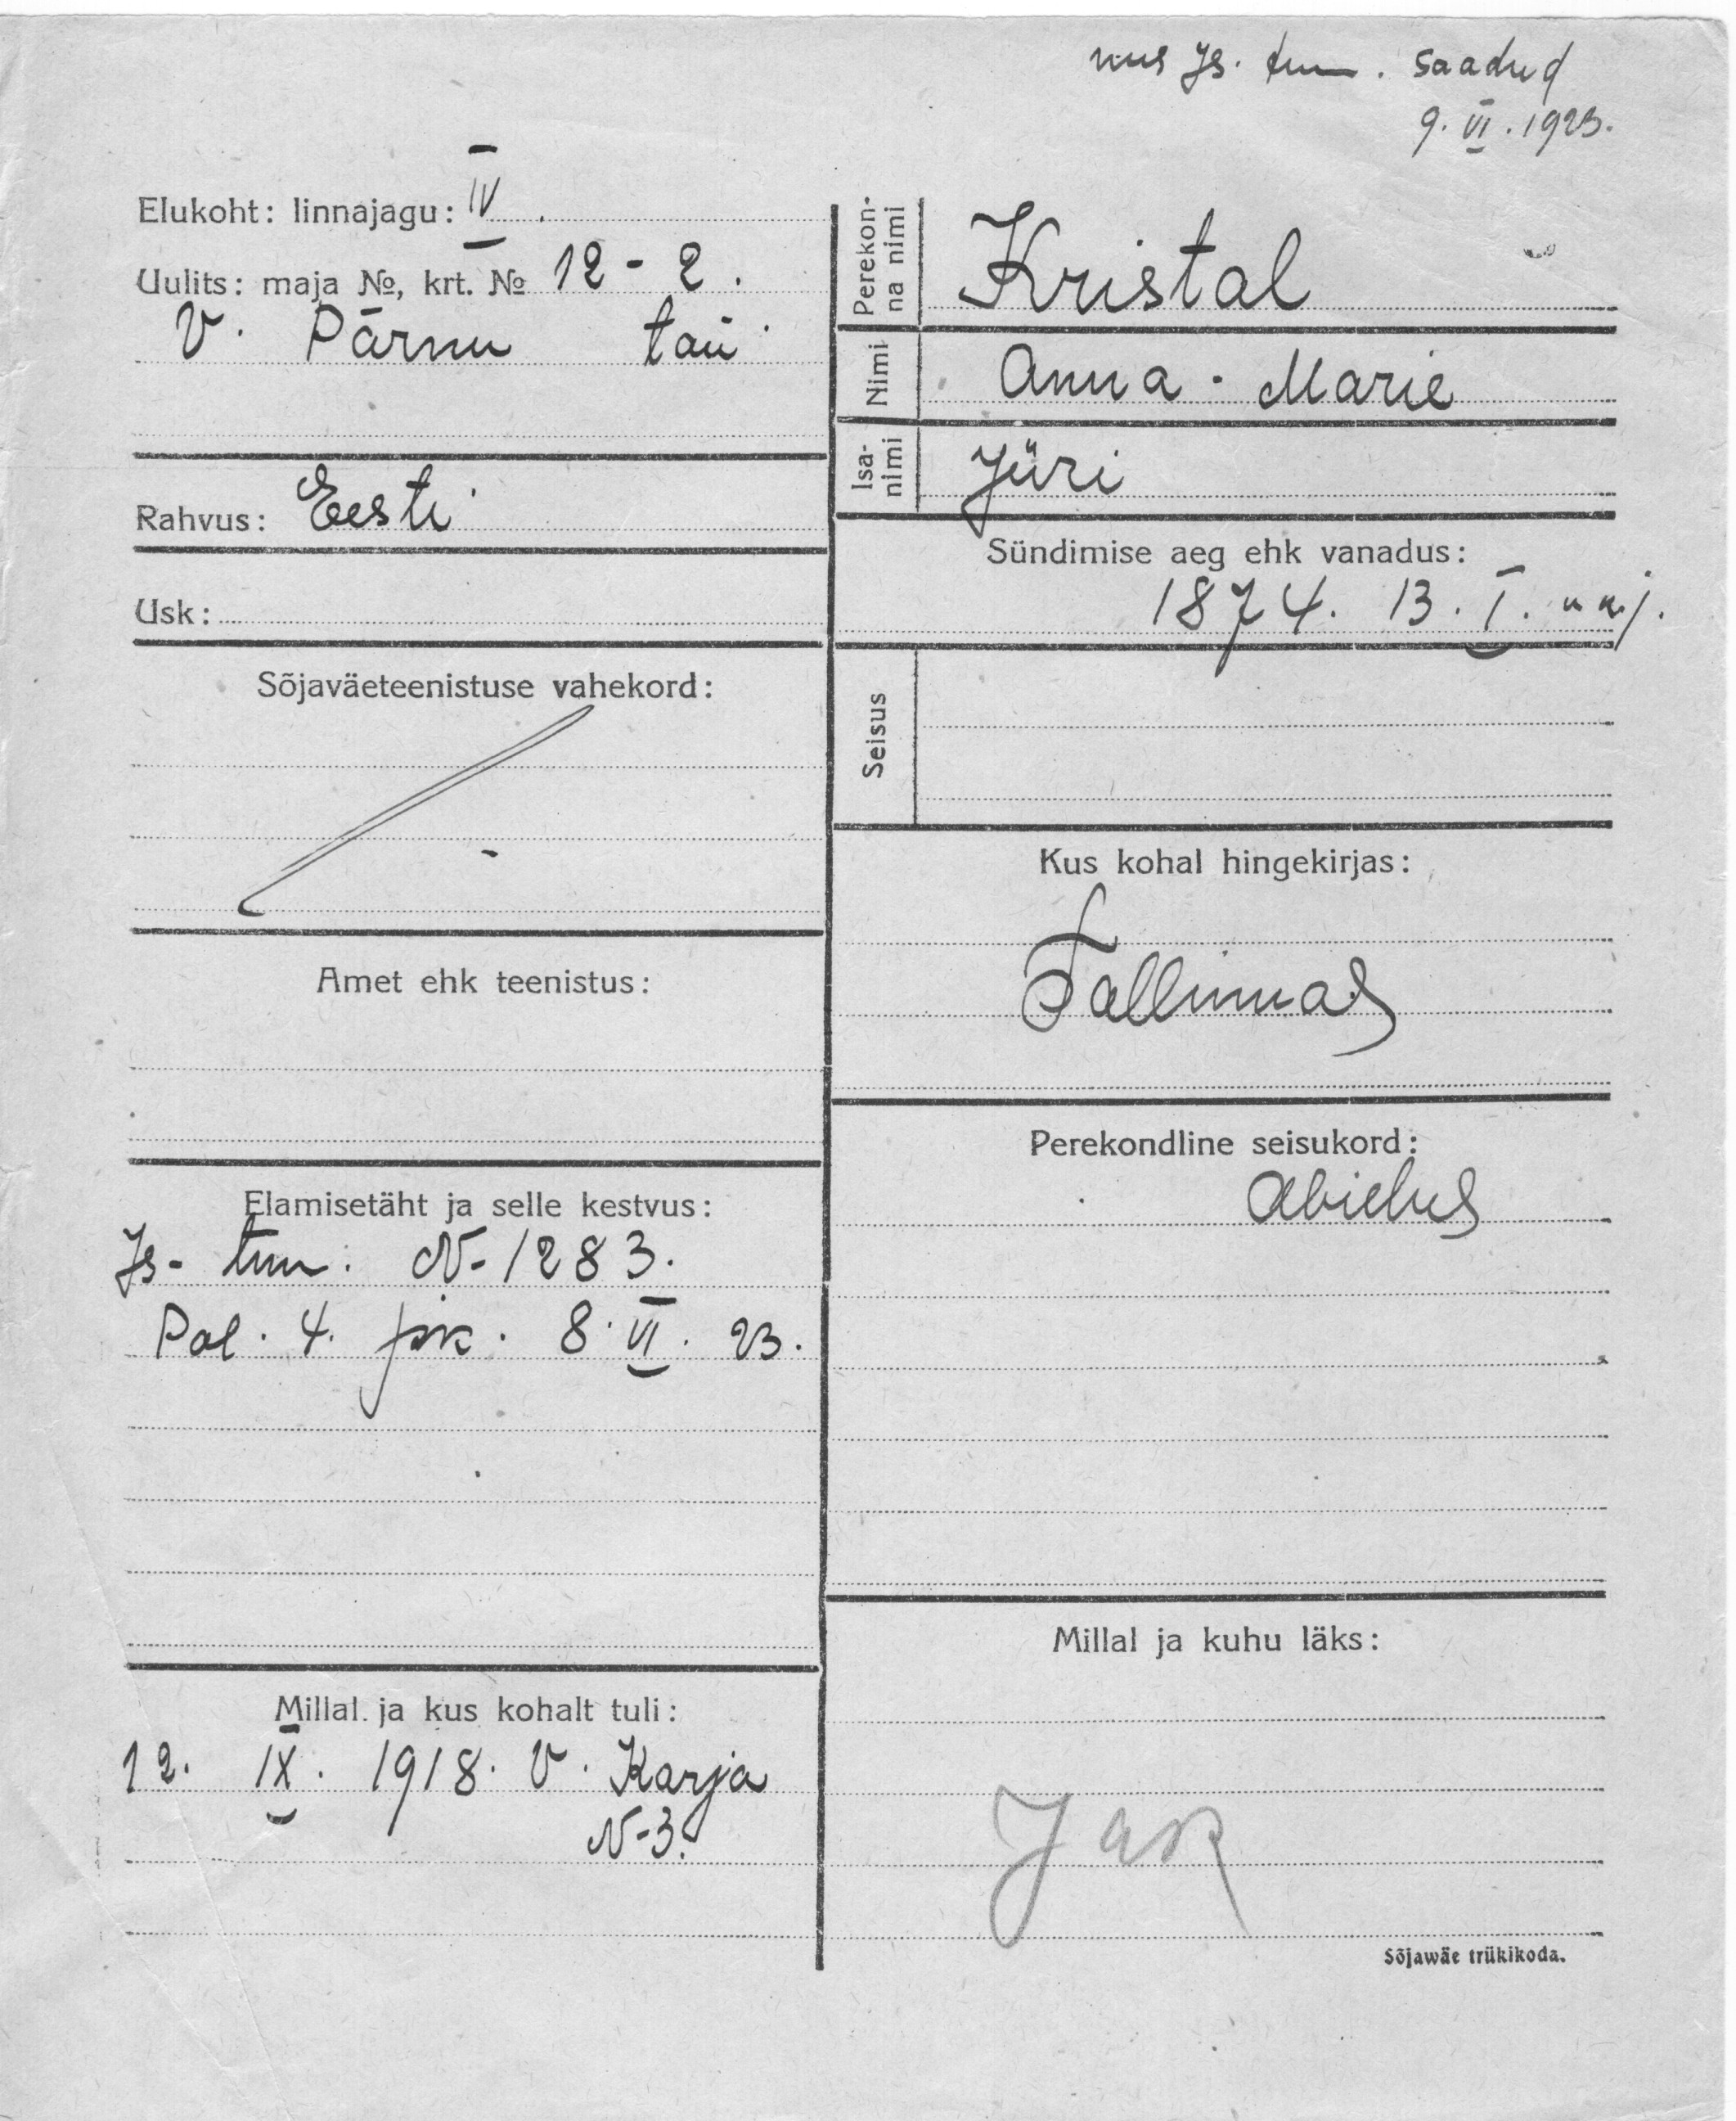 uus Js. tun. saadud
9. VI. 1923.
Elukoht: linnajagu: IV.
Uulits: maja №, krt. № 12 - 2.
V. Pärnu tän.
Rahvus: Eesti
Usk:
Sõjaväeteenistuse vahekord:
Amet ehk teenistus:
Elamisetäht ja selle kestvus:
Js- tun. N-1283.
Pol. 4. jsk. 8. VI. 23.
Millal ja kus kohalt tuli:
12. IX. 1918. V. Karja
N-3.
Perekon-
na nimi
Kristal
Nimi
Anna - Marie
Isa-
nimi
Jüri
Sündimise aeg ehk vanadus:
1874. 13. I. u.k.j.
Seisus
Kus kohal hingekirjas:
Tallinnas
Perekondline seisukord:
abielus
Millal ja kuhu läks:
Sõjawäe trükikoda.